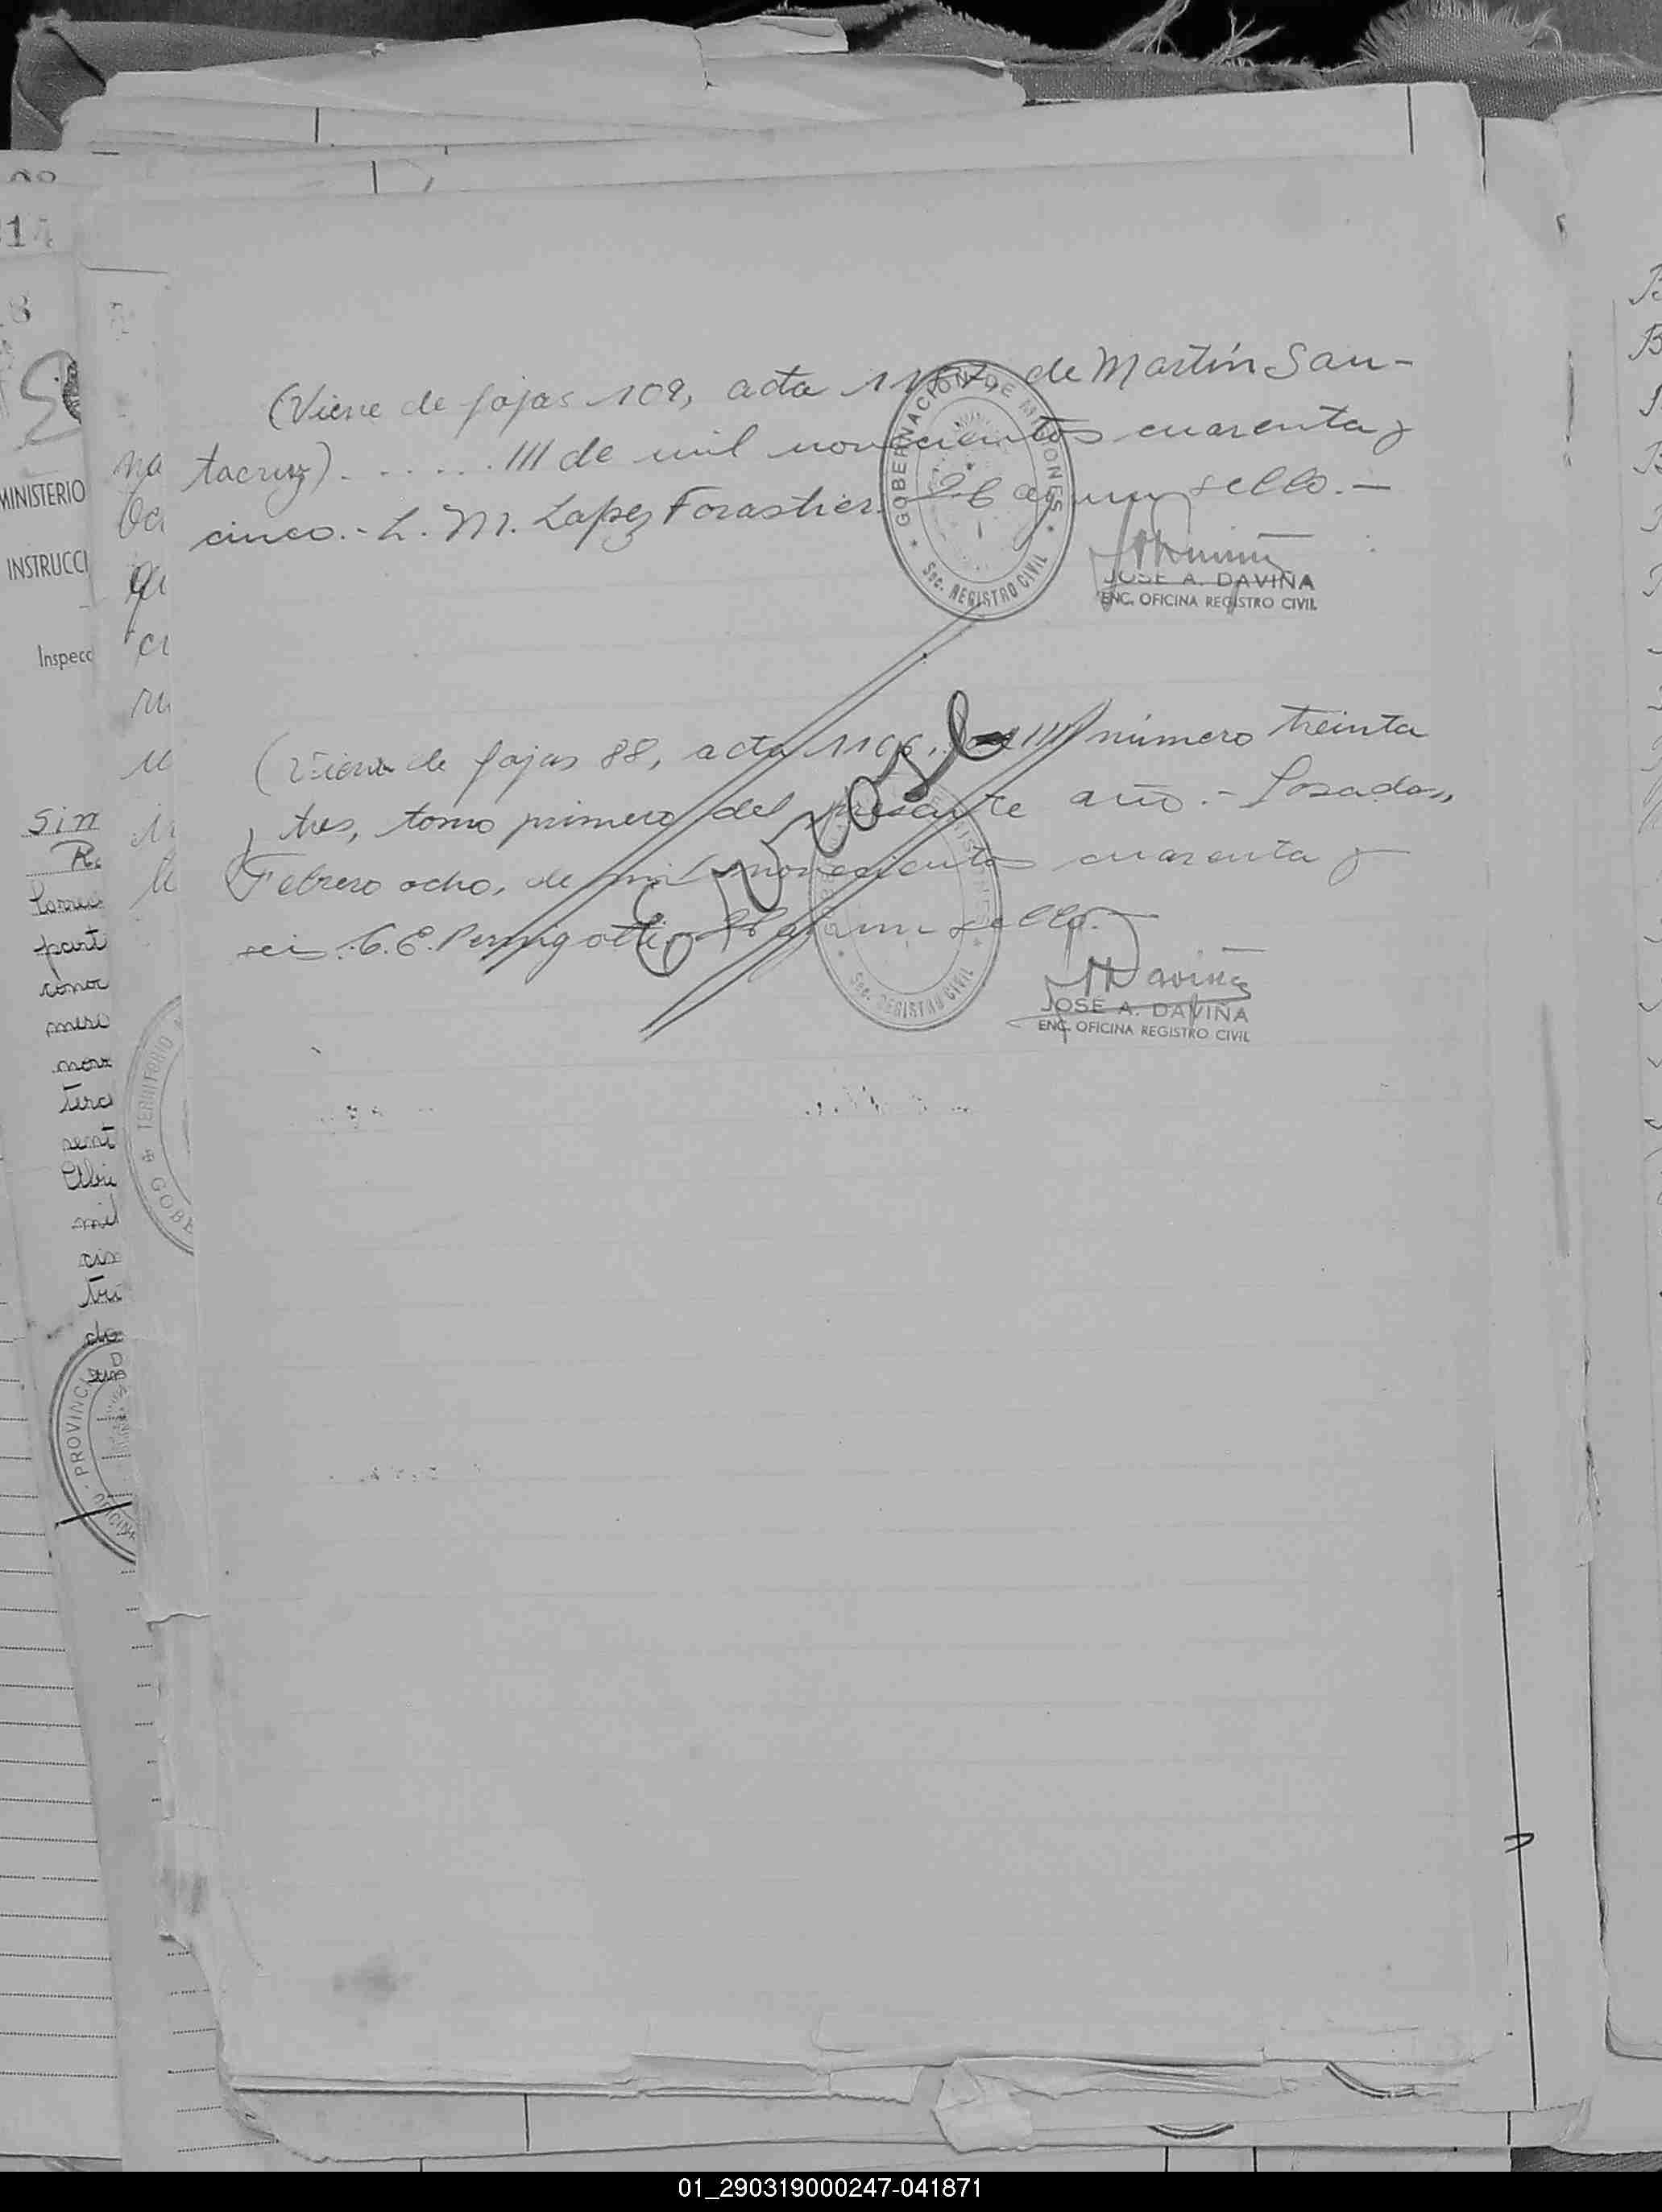 (Viene de fojas 109, acta de Martín San-
tacruz). . . . . . . III de mil novecientos cuarenta y
cinco.- L. M. Lopez Forastier. Hay un sello.-
GOBERNACION DE MISIONES
Sec. REGISTRO CIVIL
JOSÉ A. DAVIÑA
ENC. OFICINA REGISTRO CIVIL
(Viene de fojas 88, acta 1106, III número treinta
y tres, tomo primero del presente año.- Posadas,
Febrero ocho, de mil novecientos cuarenta y
seis. C.E. Pernigotti. Hay un sello.-
Sec. REGISTRO CIVIL
Daviña
JOSÉ A. DAVIÑA
ENC. OFICINA REGISTRO CIVIL
MINISTERIO
INSTRUCCI
Inspecc
TERRITORIO
GOBE
PROVINCI
01_290319000247-041871